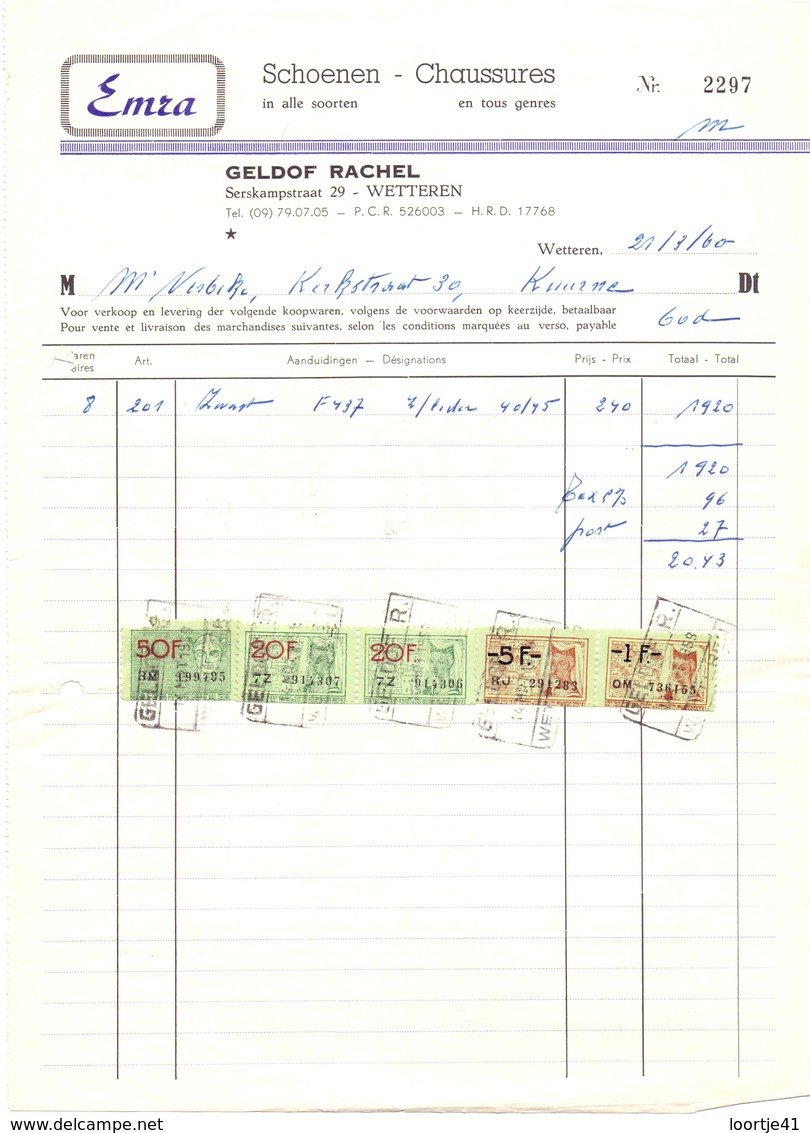 Emra
Schoenen - Chaussures
in alle soorten en tous genres
Nr. 2297
m
GELDOF RACHEL
Serskampstraat 29 - WETTEREN
Tel. (09) 79.07.05 — P.C.R. 526003 — H.R.D. 17768
★
Wetteren, 21/3/60
M Mr Verbeke, Kerkstraat 30, Kuurne Dt
Voor verkoop en levering der volgende koopwaren, volgens de voorwaarden op keerzijde, betaalbaar
Pour vente et livraison des marchandises suivantes, selon les conditions marquées au verso, payable
60d
aren Art. Aanduidingen — Désignations Prijs - Prix Totaal - Total
aires
8 201 Zwart F437 leder 40/45 240 1920
1920
Tax 5% 96
port 27
20.43
50F. 20F. 20F. -5F- -1F-
3M 199785 7Z 914307 7Z 914306 8J 291283 OM 736155
loortje41